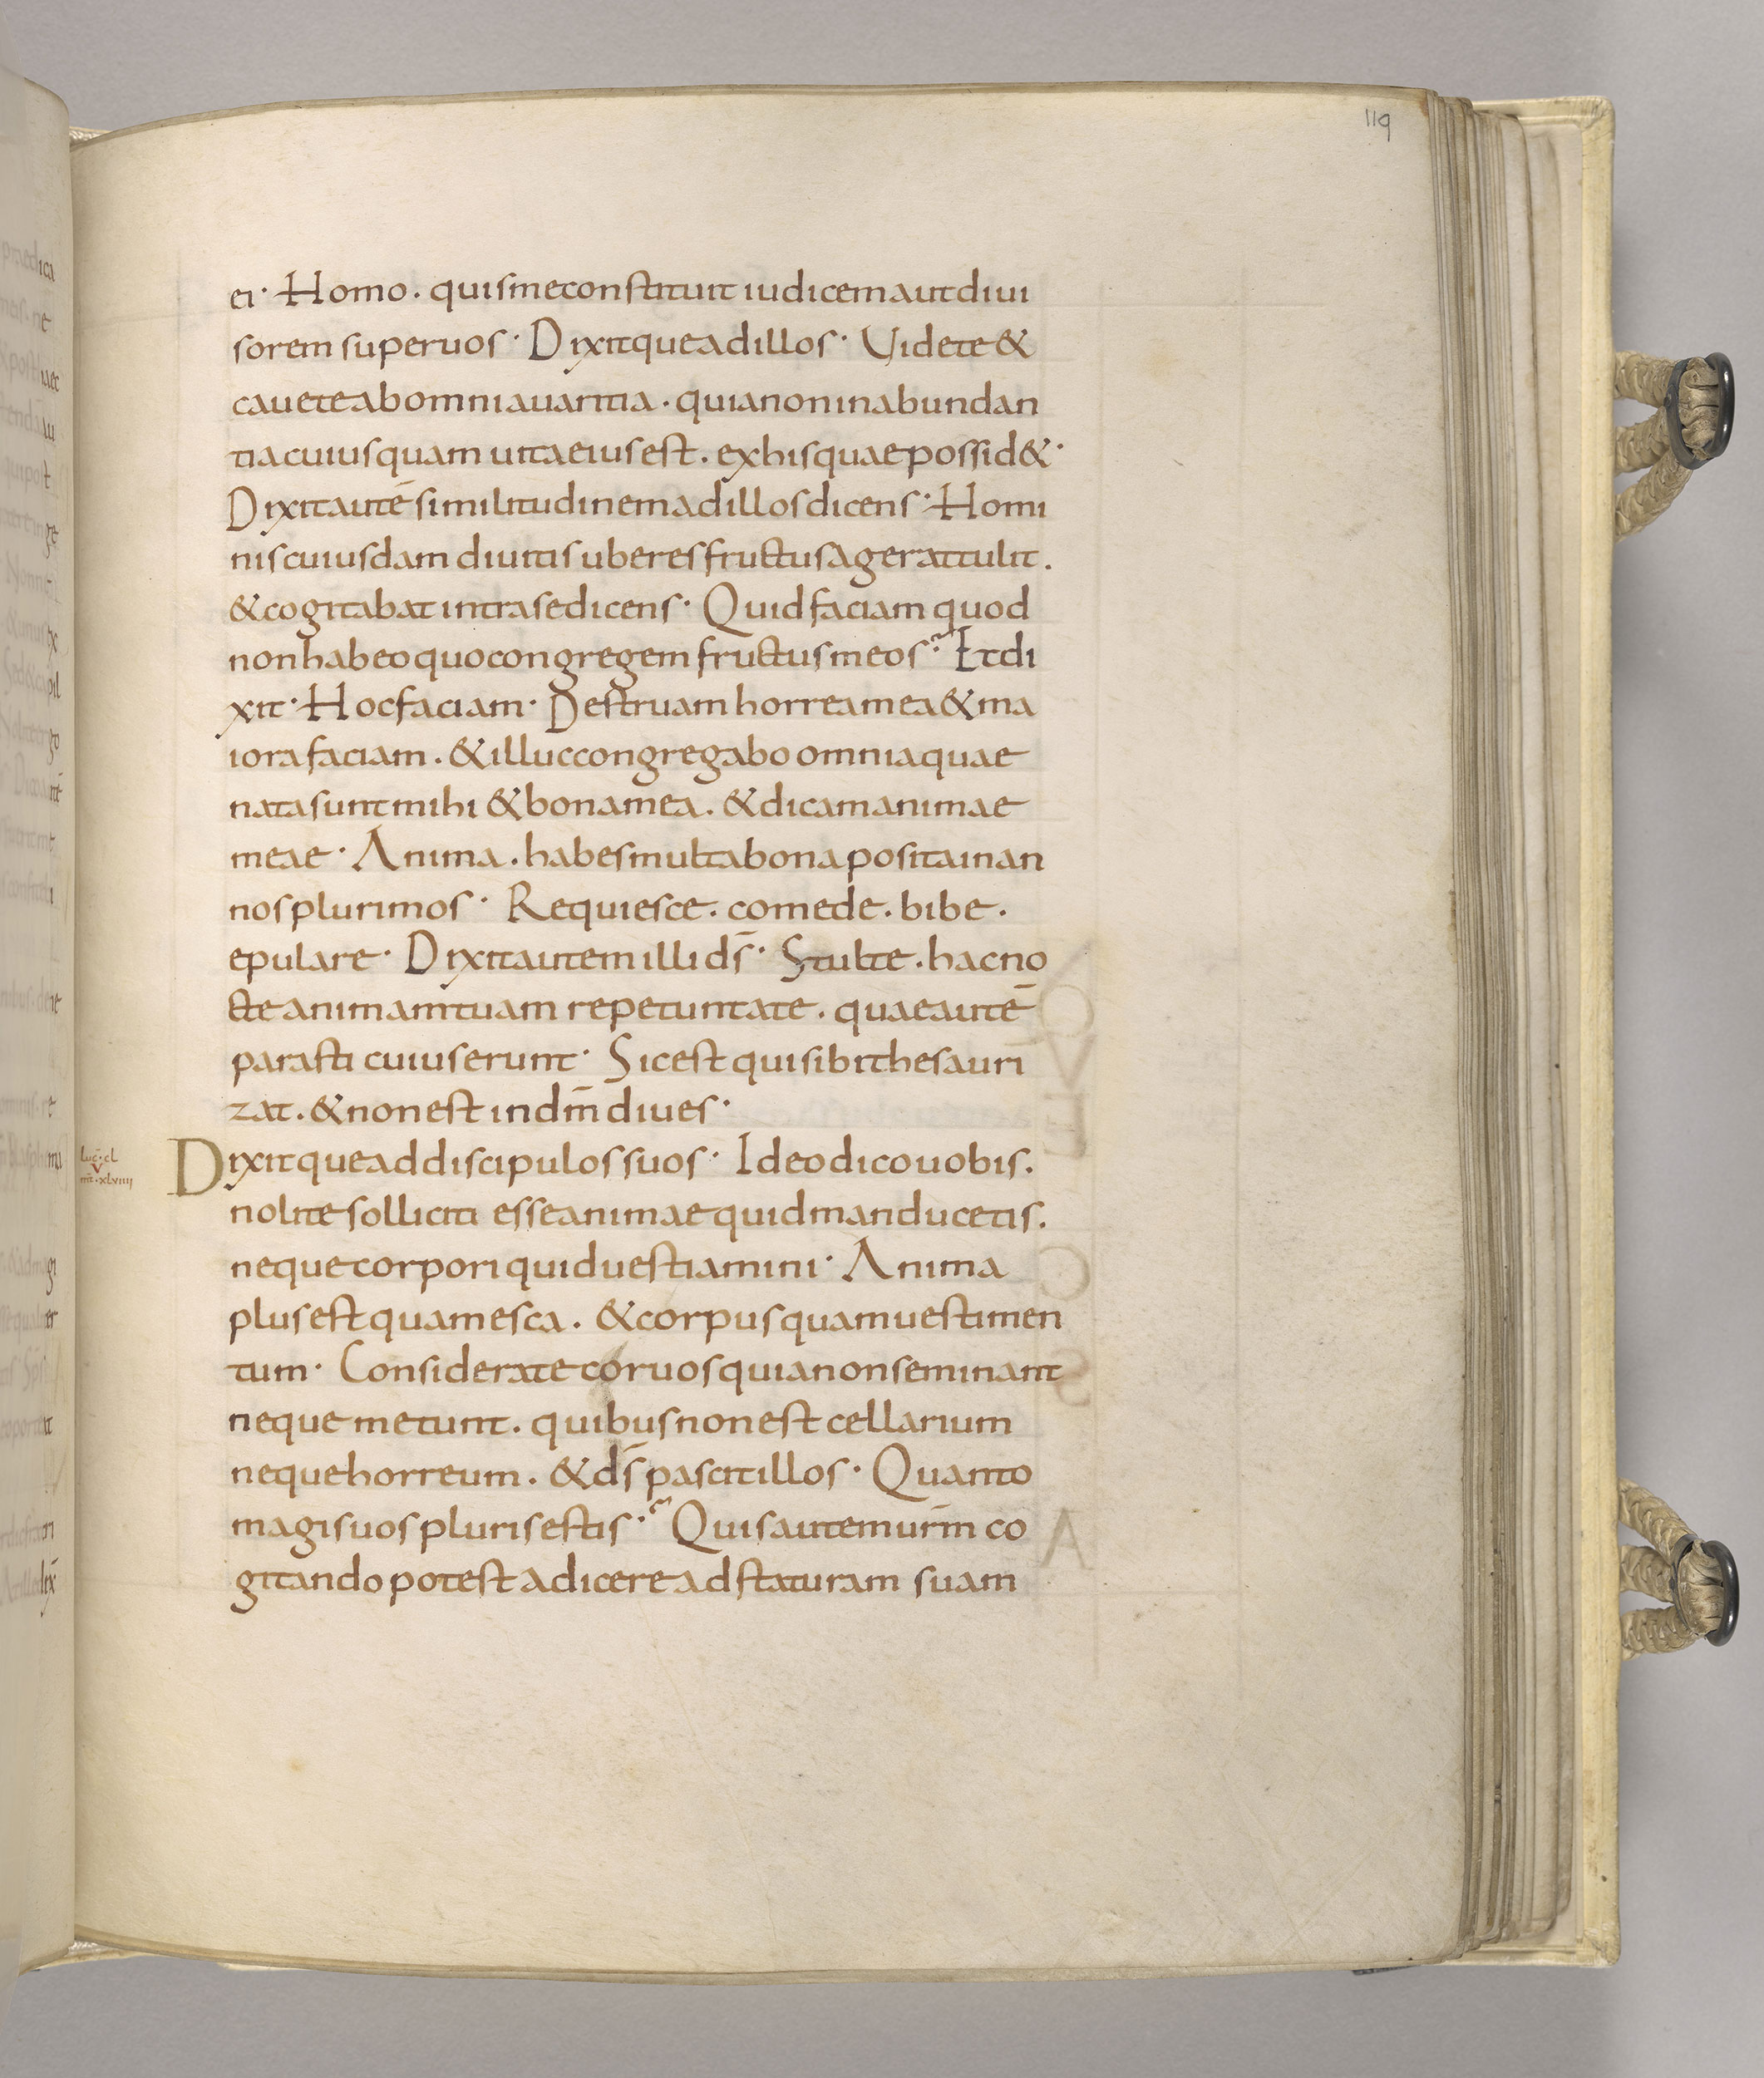 119
ei· Homo. quis me constituit iudicem aut divi
sorem super vos· Dixitque ad illos· Videte &
cavete ab omni avaritia. quia non in abundan
tia cuiusquam vita eius est. ex his quae possid&·
Dixit autē similitudinem ad illos dicens· Homi
nis cuiusdam divitis uberes fructus ager attulit.
& cogitabat intra se dicens· Quid faciam quod
non habeo quo congregem fructus meos? Et di
xit· Hoc faciam· Destruam horrea mea & ma
iora faciam. & illuc congregabo omnia quae
nata sunt mihi & bona mea. & dicam animae
meae· Anima. habes multa bona posita in an
nos plurimos· Requiesce. comede. bibe.
epulare· Dixit autem illi ds̄· Stulte. hac no
cte animam tuam repetunt a te. quae autē
parasti cuius erunt· Sic est qui sibi thesauri
zat. & non est in dm̄ dives·
Luc·cl
V
mt·xlviiii
Dixitque ad discipulos suos· Ideo dico vobis.
nolite solliciti esse animae quid manducetis.
neque corpori quid vestiamini· Anima
plus est quam esca. & corpus quam vestimen
tum· Considerate corvos quia non seminant
neque metunt. quibus non est cellarium
neque horreum. & ds̄ pascit illos· Quanto
magis vos pluris estis? Quis autem vrm̄ co
gitando potest adicere ad staturam suam